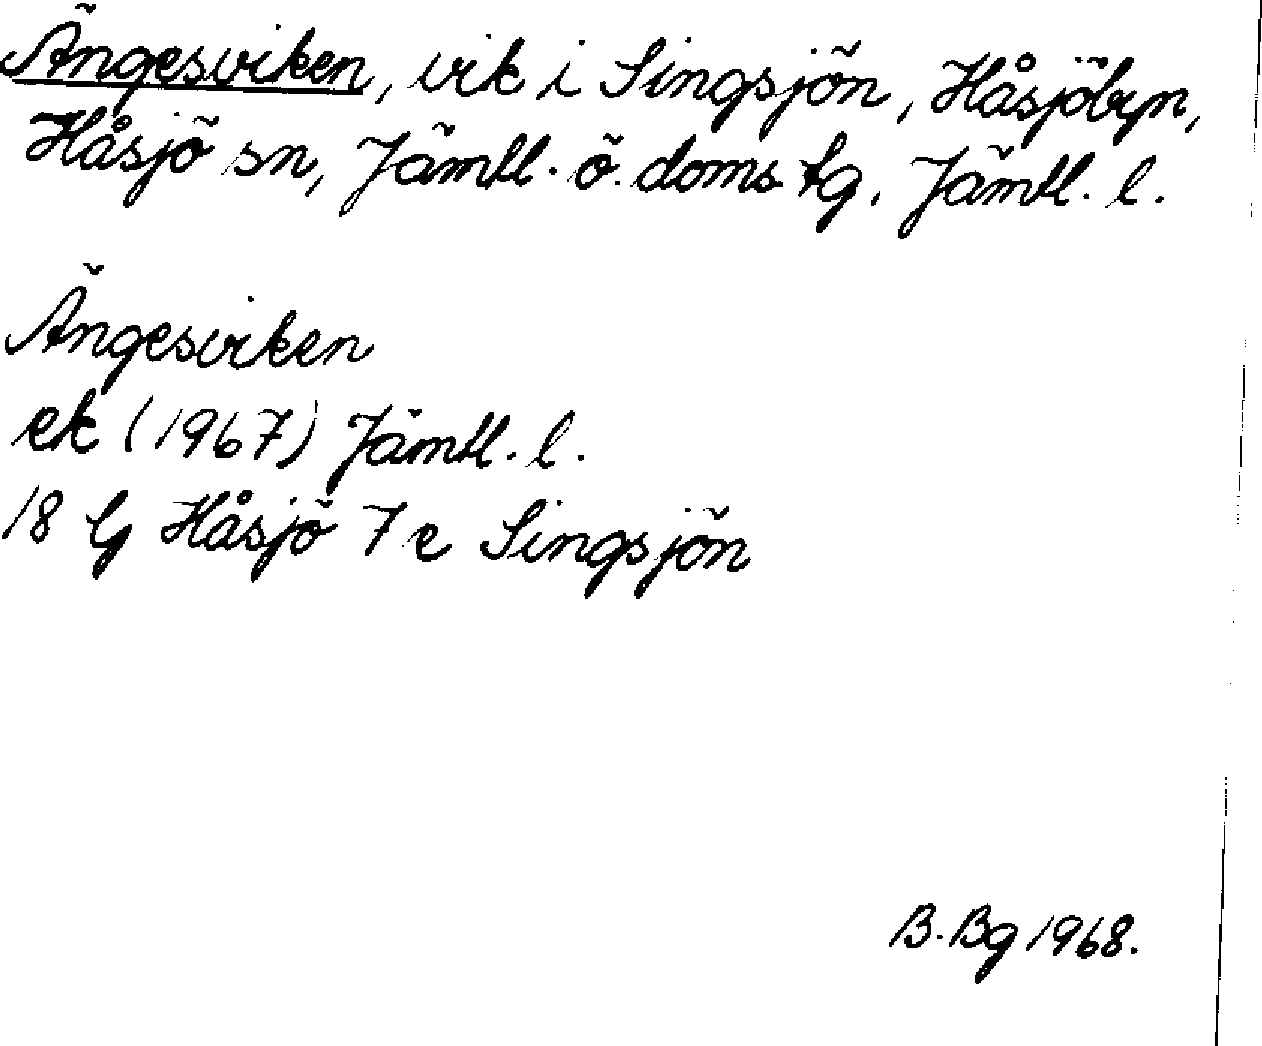 Ängesviken, vik i Singsjön, Håsjöbyn,
Håsjö sn, Jämtl. ö. doms tg, Jämtl. l.
Ängesviken
ek (1967) Jämtl. l.
18 G Håsjö 7 e Singsjön
B. Bg 1968.